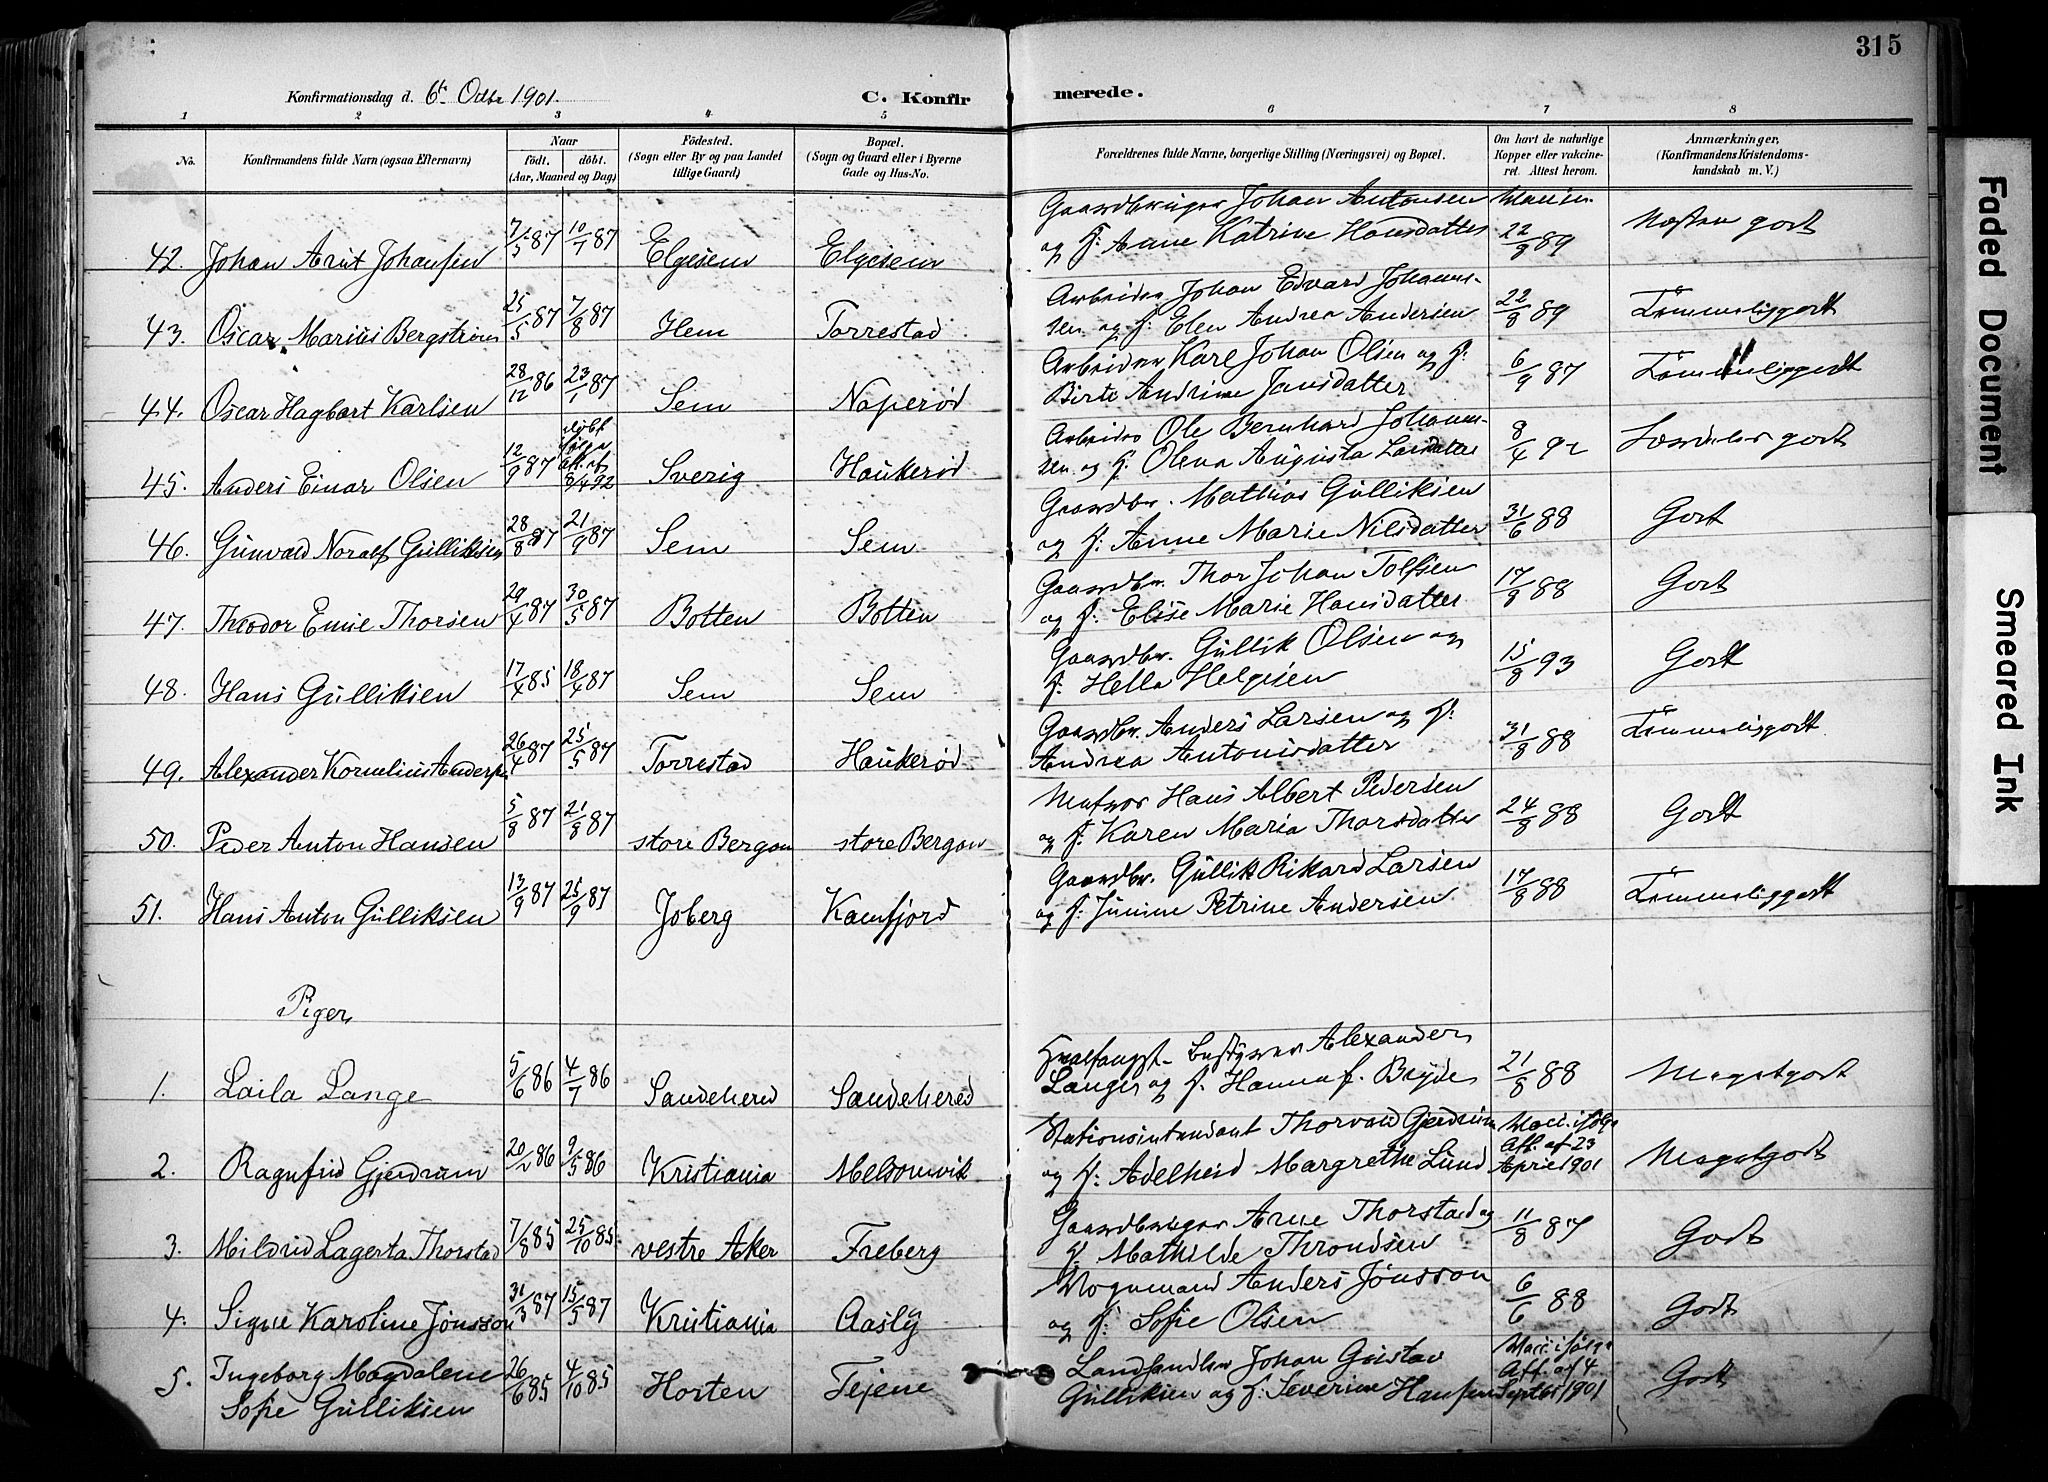 315
Konfirmationsdag d. 6te Octbr 1901.
C. Konfirmerede.
1 2 3 4 5 6 7 8
No.
Konfirmandens fulde Navn (ogsaa Efternavn)
Naar
født. døbt.
(Aar, Maaned og Dag)
Fødested.
(Sogn eller By og paa Landet
tillige Gaard)
Bopæl.
(Sogn og Gaard eller i Byerne
Gade og Hus-No.
Forældrenes fulde Navne, borgerlige Stilling (Næringsvei) og Bopæl.
Om havt de naturlige
Kopper eller vakcine-
ret. Attest herom.
Anmærkninger.
(Konfirmandens Kristendoms-
kundskab m. V.)
42. Johan Arnt Johansen 7/5 87 10/7 87 Elgesem Elgesem
Gaardbruger Johan Antonsen
og H: Anne Katrine Hansdatter
22/8 89 Næsten godt
43. Oscar Marius Bergstrøm 25/5 87 7/8 87 Hem Torrestad
Arbeider Johan Edvard Johanns-
sen og H: Elen Andrea Andersen
22/8 89 Temmeliggodt
44. Oscar Hagbart Karlsen 28/12 86 23/1 87 Sem Naperød
Arbeider Karl Johan Olsen og H:
Birte Andrine Jansdatter
6/9 87 Temmeliggodt
45. Anders Einar Olsen 12/9 87 døbt ifølge Att. af 8/4 92 Sverig Haukerød
Arbeider Ole Bernhard Johanns-
sen og H: Olena Augusta Larsdatter
8/4 92 Særdeles godt
46. Gunvald Noralf Gulliksen 28/8 87 21/9 87 Sem Sem
Gaardbr. Mathias Gulliksen
og H: Anne Marie Nilsdatter
31/6 88 Godt
47. Theodor Emil Thorsen 29/4 87 30/5 87 Botten Botten
Gaardbr. Thor Johan Tolfsen
og H: Elise Marie Hansdatter
17/8 88 Godt
48. Hans Gulliksen 17/4 85 18/4 87 Sem Sem
Gaardbr. Gullik Olsen og
H: Hella Helgesen
15/8 93 Godt
49. Alexander Kornelius Andersen 26/4 87 25/5 87 Torrestad Haukerød
Gaardbr. Anders Larsen og H:
Andrea Antonisdatter
31/8 88 Temmeliggodt
50. Peder Anton Hansen 5/8 87 21/8 87 store Bergan store Bergan
Hans Albert Pedersen
og H: Karen Maria Thorsdatter
24/8 88 Godt
51. Hans Anton Gulliksen 13/9 87 25/9 87 Joberg Kamfjord
Gaardbr. Gullik Rikard Larsen
og H: Petrine Andersen
17/8 88 Temmeliggodt
Piger
1. Laila Lange 5/6 86 4/7 86 Sandeherred Sandeherred
Hvalfangst- bestyrer Alexander
Lange og H: Hanna f. Bryde
21/8 88 Megetgodt
2. Ragnfrid Gjerdrum 20/2 86 9/5 86 Kristiania Melsomvik
Stationsintendant Thorvald Gjerdrum
og H: Adelheid Margrethe Lund
Vacc. ifølge
Att. af 23
April 1901
Megetgodt
3. Mildrid Lagerta Thorstad 7/8 85 25/10 85 vestre Aker Freberg
Gaardbruger Arne Thorstad og
H: Mathilde Throndsen
11/8 87 Godt
4. Signe Karoline Jönsson 31/3 87 15/5 87 Kristiania Aasly
Vognmand Anders Jönsson
og H: Sofie Olsen
6/6 88 Godt
5. Ingeborg Magdalene
Sofie Gulliksen
26/6 85 4/10 85 Horten Fejene
Landhandler Johan Gustav
Gulliksen og H: Severine Hansen
Vacc. ifølge
Att. af 4
Septbr 1901
Godt
Faded Document
Smeared Ink